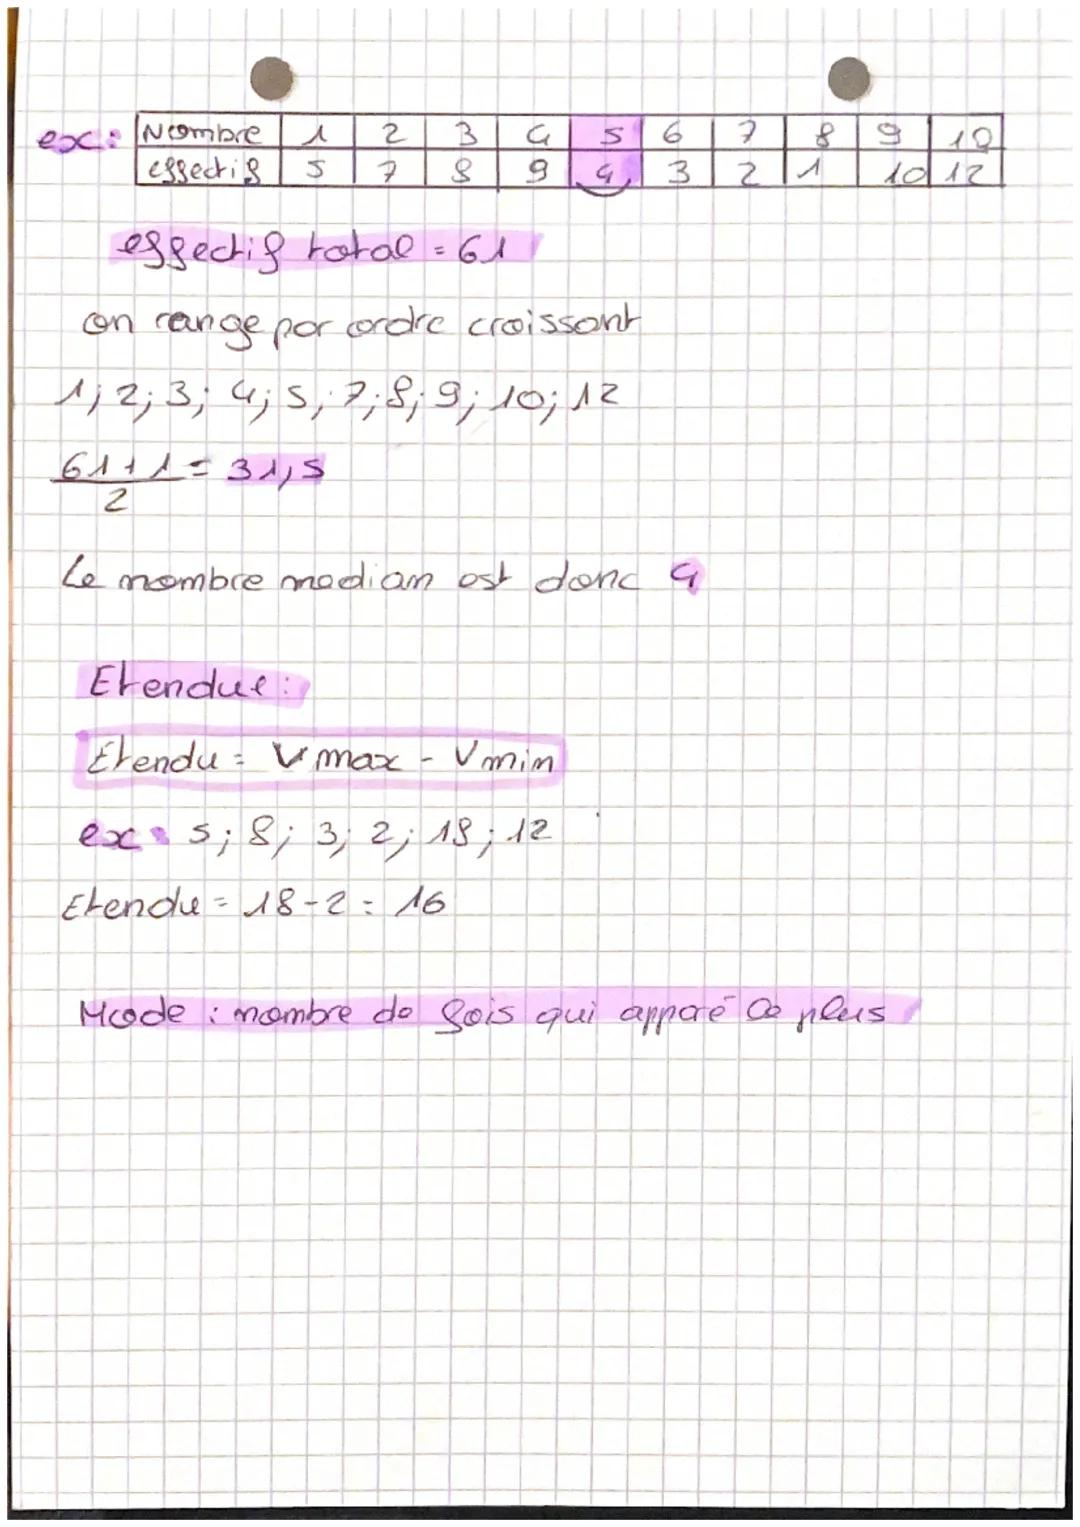 ex: Nombre 1 2 3 4 5 6 7 8 9 10
effectif 5 7 8 9 4 3 2 1 10 12
effectif total = 61
on range par ordre croissant
1; 2; 3; 4; 5; 7; 8; 9; 10; 12
61+1/2 = 31,5
Le nombre median est donc 4
Etendue:
Etendu = Vmax - Vmin
ex: 5; 8; 3; 2; 18; 12
Etendu = 18-2 = 16
Mode : nombre de fois qui apparé le plus